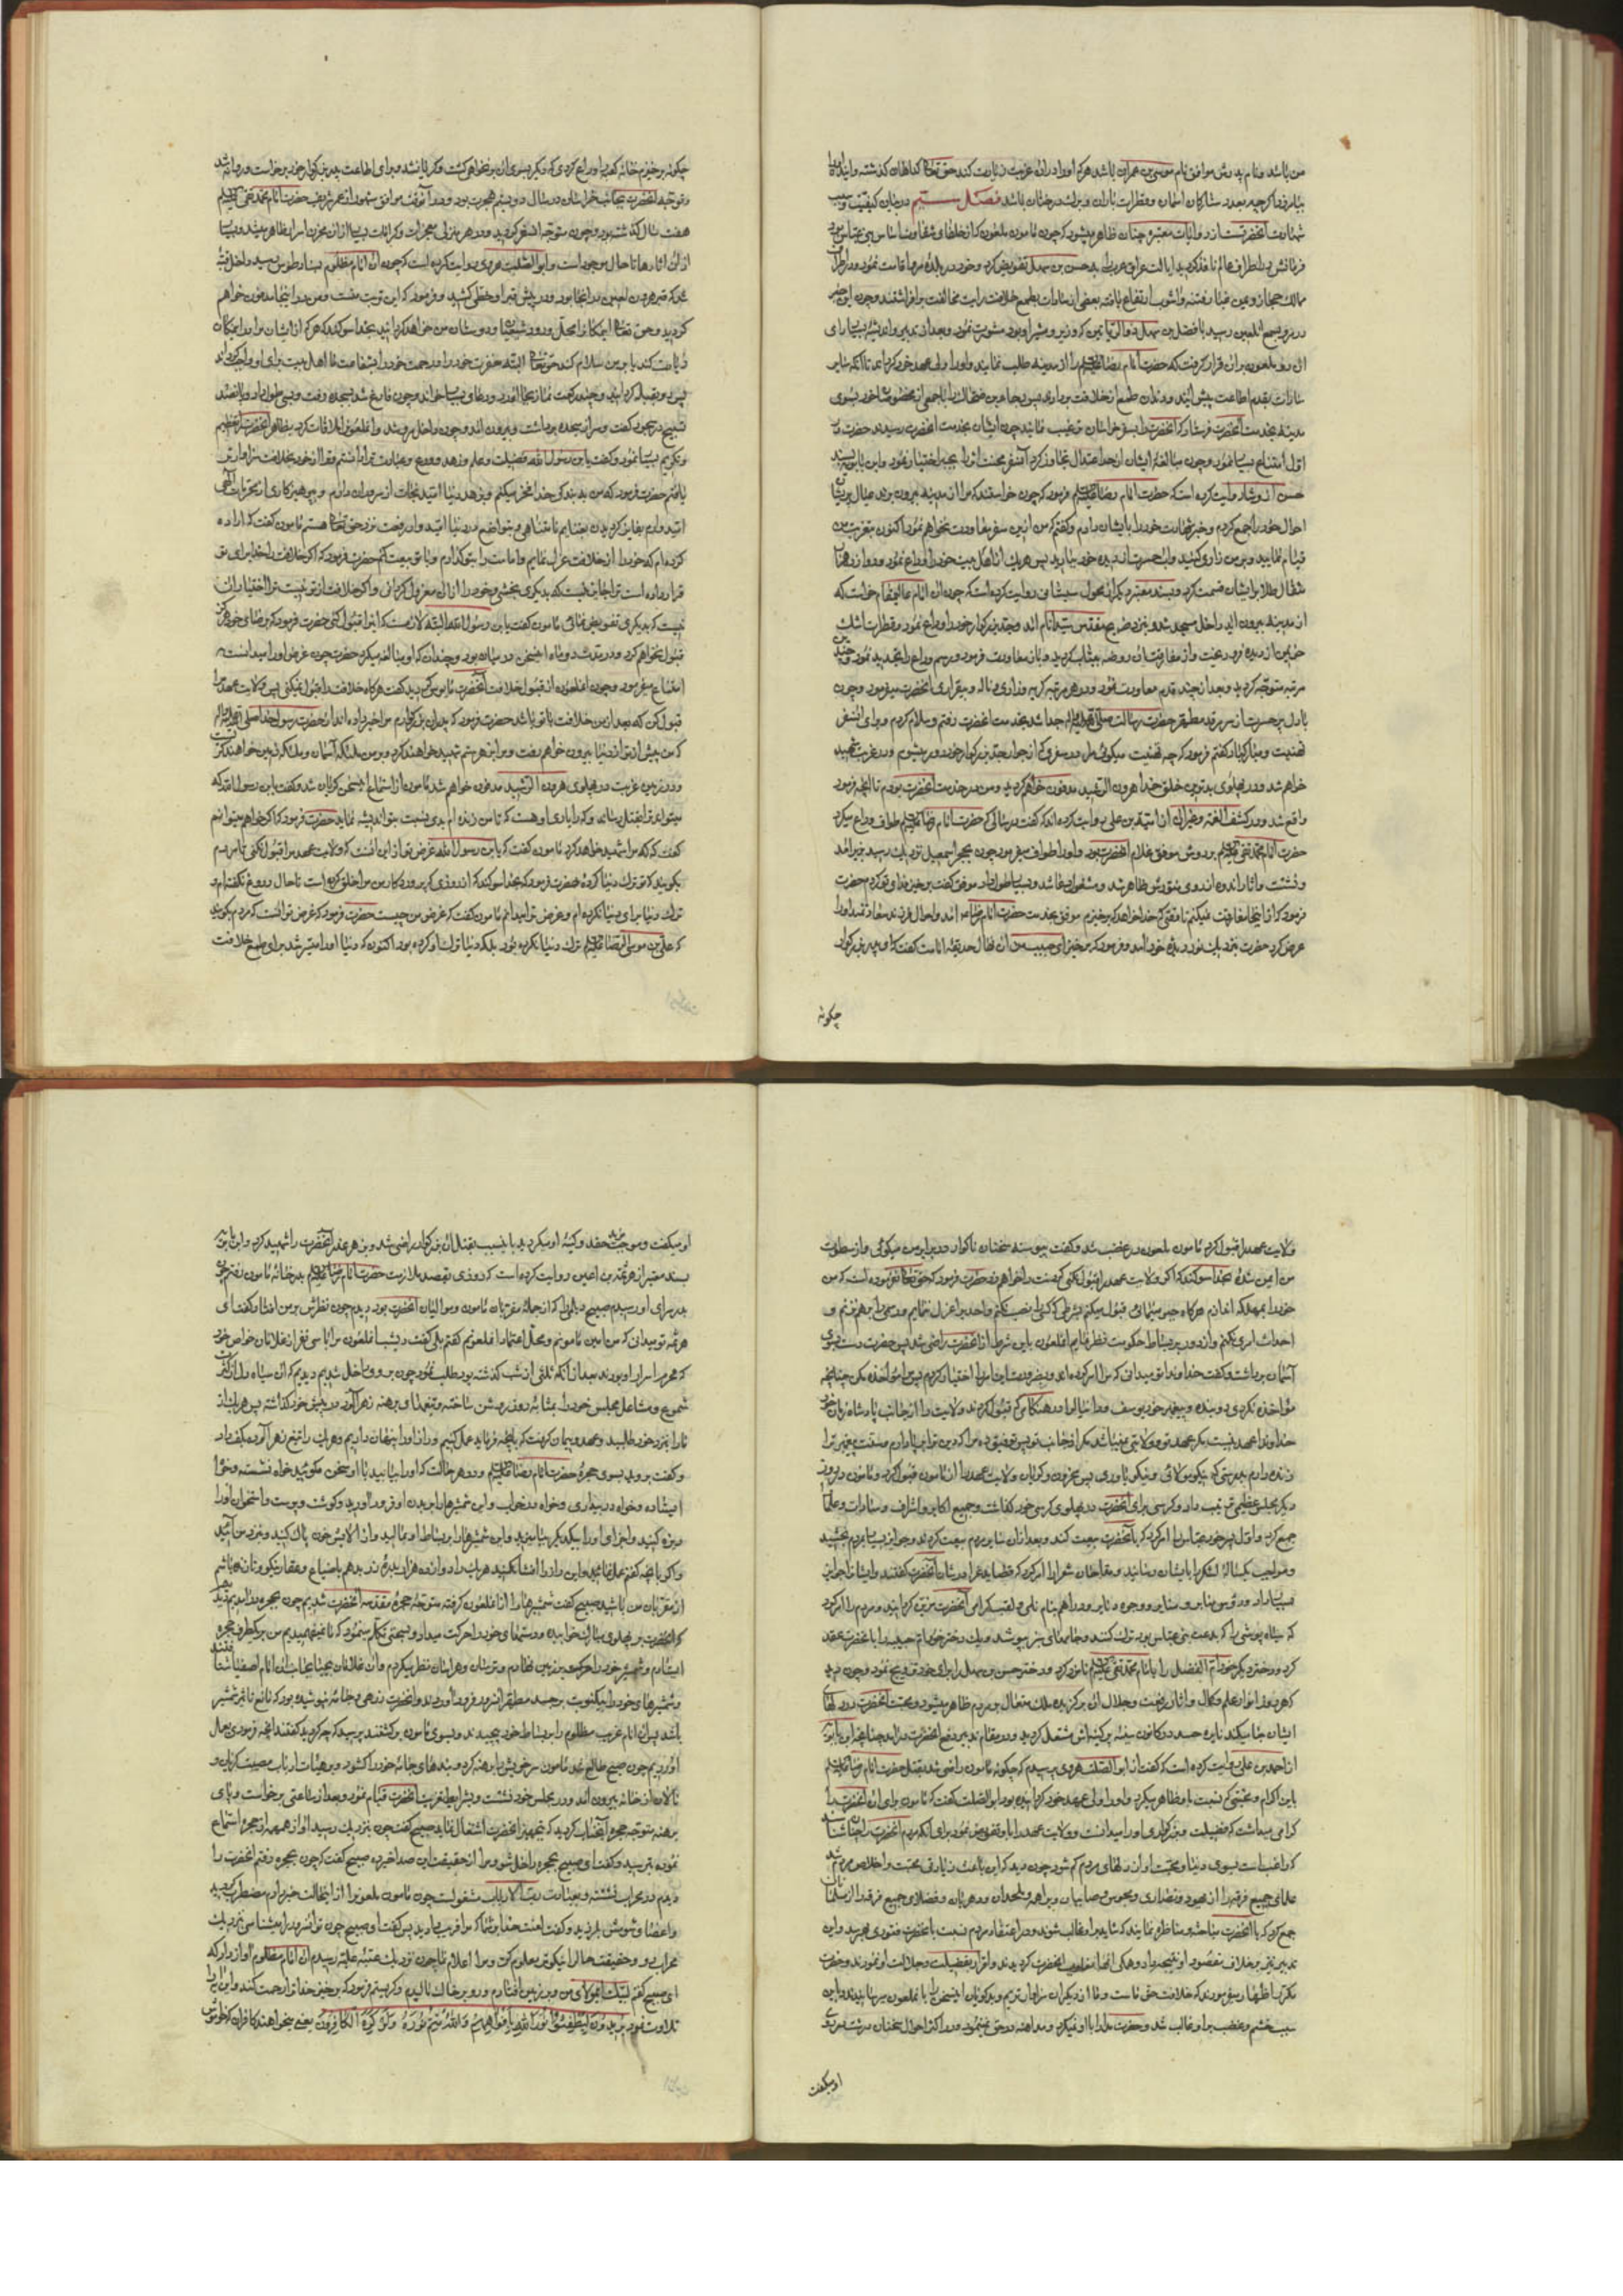 من باشد و نام پدرش موافق نام موسی بن عمران باشد هر که او را در ان غربت زیارت کند حق تعالی گناهان گذشته و اینده
بیامرزد اگرچه بعدد ستارگان اسمان و قطرات باران و برگ درختان باشد فصل سیم در بیان کیفیت و سبب
شهادت انحضرتست از روایات معتبره چنان ظاهر میشود که چون مامون ملعون که از خلفای شقاوت اساس بنی عباس بود
فرمانش در اطراف عالم نافذ گردید ایالت عراق عرب را بحسن بن سهل تفویض کرد و خود در بلده مرو اقامت نمود و در اطراف
ممالک حجاز و یمن غبار فتنه و اشوب ارتفاع یافته بعضی از سادات بطمع خلافت رایت مخالفت برافراشتند و چون این خبر
در مرو بسمع انلعین رسید با فضل بن سهل ذوالریاستین که وزیر و مشیر او بود مشورت نمود و بعد از تدبیر و اندیشه بسیار رای
ان دو ملعون بران قرار گرفت که حضرت امام رضا علیه السلم را از مدینه طلب نمایند و او را ولی عهد خود گرداند تا انکه سایر
سادات بقدم اطاعت پیش ایند و دندان طمع از خلافت بردارند پس رجاء بن ضحاک را با جمعی از مخصوصان خود بسوی
مدینه بخدمت انحضرت فرستاد که انحضرت را بسفر خراسان ترغیب نمایند چون ایشان بخدمت انحضرت رسیدند حضرت در
اول امتناع بسیار نمود و چون مبالغه ایشان از حد اعتدال تجاوز کرد ان سفر محنت اثر را بجبر اختیار نمود و ابن بابویه بسند
حسن از وشا روایت کرده است که حضرت امام رضا علیه السلم فرمود که چون خواستند که مرا از مدینه بیرون برند عیال پریشان
احوال خود را جمع کردم و خبر شهادت خود را بایشان دادم و گفتم که من ازین سفر معاودت نخواهم نمود اکنون بتعزیت من
قیام نمایید و بر من زاری کنید و اب حسرت از دیده خود ببارید پس هر یک از اهل بیت خود را وداع نمود و دوازده هزار
مثقال طلا برایشان قسمت کرد و بسند معتبر دیگر از محول سجستانی روایت کرده است که چون ان امام عالیمقام خواست که
از مدینه بیرون اید داخل مسجد شد و بنزد ضریح مقدس سید انام امد و جد بزرگوار خود را وداع نمود و قطرات اشک
خونین از دیده فرو ریخت و از مفارقت ان روضه بیتاب گردید و باز معاودت فرمود و رسم وداع را تجدید نمود و چند
مرتبه متوجه گردید و بعد از چند قدم معاودت نمود و در هر مرتبه گریه و زاری و ناله و بیقراری انحضرت میفزود و چون
با دل پر حسرت از سر مرقد مطهر حضرت رسالت صلی الله علیه و اله جدا شد بخدمت انحضرت رفتم و سلام کردم و برای ان سفر
تهنیت و مبارکباد گفتم فرمود که چه تهنیت میگوئی مرا در سفری که از جوار جد بزرگوار خود دور میشوم و در غربت شهید
خواهم شد و در پهلوی بدترین خلق خدا هرون الرشید مدفون خواهم گردید و من در خدمت انحضرت بودم تا انچه فرمود
واقع شد و در کشف الغمه و غیر ان از امیة بن علی روایت کرده اند که گفت در سالی که حضرت امام رضا علیه السلم طواف وداع میکرد
حضرت امام محمد تقی علیه السلم بر دوش موفق غلام انحضرت بود و او را طواف میفرمود چون بحجر اسمعیل نزدیک رسید بزیر امد
و نشست و اثار اندوه از روی منورش ظاهر شد و مشغول دعا شد و بسیار طول داد موفق گفت برخیز فدای تو گردم حضرت
فرمود که از اینجا مفارقت نمیکنم تا وقتی که خدا خواهد که برخیزم موفق بخدمت حضرت امام رضا امد و احوال فرزند سعادتمند او را
عرض کرد حضرت بنزدیک نور دیده خود امد و فرمود که برخیز ای حبیب من ان نهال حدیقه امامت گفت که ای پدر بزرگوار
چگونه
چگونه برخیزم خانه کعبه را وداع کردی که دیگر بسوی ان بر نخواهی گشت و گریان شد و برای اطاعت پدر بزرگوار خود برخواست و روانه شد
و توجه انحضرت بجانب خراسان در سال دویستم هجرت بود و در آنوقت موافق مشهور از عمر شریف حضرت امام محمد تقی علیه السلم
هفت سال گذشته بود و چون متوجه ان سفر گردید در هر منزلی معجزات و کرامات بسیار از ان مخزن اسرار ظاهر میشد و بسیاری
از ان اثارها تا حال موجود است و ابوالصلت هروی روایت کرده است که چون ان امام مظلوم بسناباد طوس رسید داخل قبه
شد که قبر هرون لعین در انجا بود و در پیش قبر او خطی کشید و فرمود که این تربت منست و من در اینجا مدفون خواهم
گردید و حق تعالی اینمکان را محل ورود شیعیان و دوستان من خواهد گردانید بخدا سوگند که هر که از ایشان مرا در اینمکان
زیارت کند یا بر من سلام کند حق تعالی البته مغفرت خود را و رحمت خود را بشفاعت ما اهل بیت برای او واجب گرداند
پس رو بقبله گردانید و چند رکعت نماز بجا آورد و دعای بسیار خواند و چون فارغ شد بسجده رفت و بسی طول داد و پانصد
تسبیح در سجود گفت و سر از سجده برداشت و بیرون امد و چون داخل مرو شد و انلعون را ملاقات کرد بظاهر انحضرت را تعظیم
و تکریم بسیار نمود و گفت یابن رسول الله فضیلت و علم و زهد و ورع و عبادت ترا دانستم و ترا از خود بخلافت سزاوارتر
یافتم حضرت فرمود که من به بندگی خدا فخر میکنم و بزهد دنیا امید نجات از شرور ان دارم و بپرهیزکاری از محرمات الهی
امید دارم بفایز گردیدن بغنایم نامتناهی و بتواضع در دنیا امید وار رفعت نزد حق تعالی هستم مامون گفت که اراده
کرده ام که خود را از خلافت عزل نمایم و امامت را بتو گذارم و با تو بیعت کنم حضرت فرمود که اگر خلافت را خدا برای تو
قرار داده است ترا جایز نیست که بدیگری بخشی و خود را از ان معزول گردانی و اگر خلافت از تو نیست ترا اختیار ان
نیست که بدیگری تفویض نمائی مامون گفت یابن رسول الله البته لازمست که اینرا قبول کنی حضرت فرمود که برضای خود هرگز
قبول نخواهم کرد و در مدت دو ماه این سخن در میان بود و چندان که او مبالغه میکرد حضرت چون غرض او را میدانست
امتناع میفرمود و چون انملعون از قبول خلافت انحضرت مایوس گردید گفت هرگاه خلافت را قبول نمیکنی پس ولایت عهد مرا
قبول کن که بعد از من خلافت با تو باشد حضرت فرمود که پدران بزرگوارم مرا خبر داده اند از حضرت رسول خدا صلی الله علیه و اله
که من پیش از تو از دنیا بیرون خواهم رفت و مرا بزهر ستم شهید خواهند کرد و بر من ملائکه آسمان و ملائکه زمین خواهند گریست
و در زمین غربت در پهلوی هرون الرشید مدفون خواهم شد مامون از استماع این سخن گریان شد و گفت یابن رسول الله که
میتواند ترا بقتل رساند و که را یارای او هست که تا من زنده ام بدی نسبت بتو اندیشه نماید حضرت فرمود که اگر خواهم میتوانم
گفت که که مرا شهید خواهد کرد مامون گفت که یابن رسول الله غرض تو از این انست که ولایت عهد مرا قبول نکنی تا مردم
بگویند که تو ترک دنیا کرده حضرت فرمود که بخدا سوگند که از روزی که پروردگار من مرا خلق کرده است تا حال دروغ نگفته ام و
ترک دنیا برای دنیا نکرده ام و غرض ترا میدانم مامون گفت که غرض من چیست حضرت فرمود که غرض تو انست که مردم بگویند
که علی بن موسی الرضا علیه السلم ترک دنیا نکرده بود بلکه دنیا ترک او کرده بود اکنون که دنیا او را میسر شد برای طمع خلافت
ولایت عهد را قبول کرد مامون ملعون در غضب شد و گفت پیوسته سخنان ناگوار در برابر من میگوئی و از سطوت
من ایمن شده بخدا سوگند که اگر ولایت عهد مرا قبول نکنی گردنت را خواهم زد حضرت فرمود که حق تعالی نفرموده است که من
خود را بمهلکه اندازم هرگاه جبر مینمائی قبول میکنم بشرطی که کسی را نصب نکنم و احدی را عزل ننمایم و رسمی را بر هم نزنم و
احداث امری نکنم و از دور بر بساط حکومت نظر نمایم انملعون باین شرط از انحضرت راضی شد پس حضرت دست بسوی
آسمان برداشت و گفت خداوندا تو میدانی که مرا اکراه کرده اند و بضرورت این امر را اختیار کردم پس مرا مؤاخذه مکن چنانچه
مؤاخذه نکردی دو بنده و پیغمبر خود یوسف و دانیال را در هنگامی که قبول کردند ولایت را از جانب پادشاه زمان خود
خداوندا عهد نیست مگر عهد تو و ولایتی نمیباشد مگر از جانب تو پس توفیق ده مرا که دین ترا برپا دارم و سنت پیغمبر ترا
زنده دارم بدرستی که نیکو مولائی و نیکو یاوری پس محزون و گریان ولایت عهد را از مامون قبول کرد و مامون در روز
دیگر مجلس عظیمی ترتیب داد و کرسی برای انحضرت در پهلوی کرسی خود گذاشت و جمیع اکابر و اشراف و سادات و علما را
جمع کرد و اول پسر خود عباس را امر کرد که با انحضرت بیعت کند و بعد از ان سایر مردم بیعت کردند و جوایز بسیار بمردم بخشید
و مواجب یکساله لشکر را بایشان رسانید و مداحان و شعرا را امر کرد که قصاید غرا در شان انحضرت گفتند و ایشان را جوایز
بسیار داد و رؤس منابر و وجوه دنانیر و دراهم بنام نامی و لقب گرامی انحضرت مزین گردانید و مردم را امر کرد
که سیاه پوشی را که بدعت بنی عباس بود ترک کنند و جامهای سبز بپوشند و یک دختر خود ام حبیبه را با انحضرت عقد
کرد و دختر دیگر خود ام الفضل را بامام محمد تقی علیه السلم نامزد کرد و دختر حسن بن سهل را برای خود تزویج نمود و چون دید
که هر روز انوار علم و کمال و اثار رفعت و جلال ان برگزیده ملک متعال بر مردم ظاهر میشود و محبت انحضرت در دلهای
ایشان جا میکند نایره حسد در کانون سینه پر کینه اش مشتعل گردید و در مقام تدبیر دفع انحضرت درامد چنانچه ابن بابویه
از احمد بن علی روایت کرده است که گفت از ابو الصلت هروی پرسیدم که چگونه مامون راضی شد بقتل حضرت امام رضا علیه السلم
باین اکرام و محبتی که نسبت باو ظاهر میکرد و او را ولی عهد خود گردانیده بود ابوالصلت گفت که مامون برای ان انحضرت را
گرامی میداشت که فضیلت و بزرگواری او را میدانست و ولایت عهد را باو تفویض نمود برای انکه مردم انحضرت را چنان شناسند
که راغبست بسوی دنیا و محبت او از دلهای مردم کم شود چون دید که این باعث زیادتی محبت و اخلاص مردم شد
علمای جمیع فرق را از یهود و نصاری و مجوس و صابیان و براهمه و ملحدان و دهریان و فضلای جمیع فرق را از مسلمانان
جمع کرد که با انحضرت مباحثه و مناظره نمایند که شاید بر او غالب شوند و در اعتقاد مردم نسبت بانحضرت فتوری بهم رسد و این
تدبیر نیز بر خلاف مقصود او نتیجه داد و همگی انها مغلوب انحضرت گردیدند و اقرار بفضیلت و جلالت او نمودند و حضرت
مکرر اظهار میفرمودند که خلافت حق ماست و ما از دیگران سزاوارتریم و بدگویان این سخن را بانملعون میرسانیدند و این
سبب خشم و غضب بر او غالب شد و حضرت مدارا با او نمیکرد و مداهنه در حق نمینمود و در اکثر احوال سخنان درشت بر روی
او میگفت
او میگفت و موجب مزید حقد و کینه او میگردید باین سبب بقتل ان بزرگوار راضی شد و بزهر غدر انحضرت را شهید کرد و ابن بابویه
بسند معتبر از هرثمة بن اعین روایت کرده است که روزی بقصد ملازمت حضرت امام رضا علیه السلم بدر خانه مامون رفتم چون
بدر سرای او رسیدم صبیح دیلمی را که از جمله مقربان مامون و موالیان انحضرت بود دیدم چون نظرش بر من افتاد گفت ای
هرثمه تو میدانی که من امین مامونم و محل اعتماد انملعونم گفتم بلی گفت دیشب انملعون مرا با سی نفر از غلامان خاص خود
که محرم اسرار او بودند بعد از انکه ثلثی از شب گذشته بود طلب نمود چون بر وی داخل شدیم دیدیم که ان سیاه دل از کثرت
شموع و مشاعل مجلس خود را بمثابه روز روشن ساخته و تیغهای برهنه زهر آلود در پیش خود گذاشته پس هر یک از
ما را بنزد خود طلبید و عهد و پیمان گرفت که بانچه فرماید عمل کنیم و راز او را پنهان داریم و هر یک را تیغ زهر آلود بکف داد
و گفت بروید بسوی حجره حضرت امام رضا علیه السلم و در هر حالت که او را بیابید با او سخن مگوئید خواه نشسته و خواه
ایستاده و خواه در بیداری و خواه در خواب و این شمشیرها را بر بدن او فرود اورید و گوشت و پوست و استخوان او را
ریزه کنید و اجزای او را بیکدیگر بیامیزید و این شمشیرها را بر بساط او مالید و از الایش خون پاک کنید و بنزد من آئید
و اگر بانچه گفتم عمل نمائید و این راز را افشا نکنید هر یک را دوازده هزار بدره زر بدهم با ضیاع و عقار نیکو و تا زنده باشم
از مقربان من باشید صبیح گفت شمشیرها را از انملعون گرفته متوجه حجره مقدسه انحضرت شدیم چون بحجره درامدیم دیدیم
که انحضرت بر پهلوی مبارک خوابیده و دستهای خود را حرکت میداد و بسخنی تکلم مینمود که ما نمیفهمیدیم من بر یکطرف حجره
ایستادم و شمشیر خود را بر زمین نهادم و ترسان و هراسان نظر میکردم و ان غلامان بیحیا بجانب ان امام اصفیا شتافتند
و شمشیرهای خود را بیکنوبت بر جسد مطهر انسرور فرود آوردند و انحضرت زرهی و جامه نپوشیده بود که مانع تاثیر شمشیر
باشد پس ان امام غریب مظلوم را در بساط خود پیچیدند و بسوی مامون برگشتند پرسید که چه کردید گفتند انچه فرمودی بعمل
اوردیم چون صبح طالع شد مامون سر خویش را برهنه کرد و بندهای جامه خود را گشود و بر هیئات ارباب مصیبت گریان و
نالان از خانه بیرون امد و در مجلس خود نشست و بشرایط تعزیت انحضرت قیام نمود و بعد از ساعتی برخواست و با پای
برهنه متوجه حجره آنجناب گردید که بتجهیز انحضرت اشتغال نماید صبیح گفت چون بنزدیک رسید آواز همهمه از حجره استماع
نموده بترسید و گفت ای صبیح بحجره داخل شو و مرا از حقیقت این صدا خبر ده صبیح گفت که چون بحجره رفتم انحضرت را
دیدم در محراب نشسته و بعبادت رب الارباب مشغولست چون مامون ملعون را از اینحالت خبر دادم مضطرب گردید
و اعضای شومش بلرزید و گفت لعنت خدا بر شما که مرا فریب دادید پس گفت ای صبیح چون تو انسرور را میشناسی نزدیک
محراب رو و حقیقت حال را نیکو تر معلوم کن و مرا اعلام نما چون نزدیک عتبه علیه رسیدم ان امام مظلوم آواز داد که
ای صبیح گفتم لبیک ای مولای من و بر زمین افتادم و رو بر خاک مالیدم و گریستم فرمود که برخیز خدا ترا رحمت کند و این آیه را
تلاوت نمود یریدون لیطفئوا نور الله بافواههم و الله متم نوره و لو کره الکافرون یعنی میخواهند کافران که خاموش